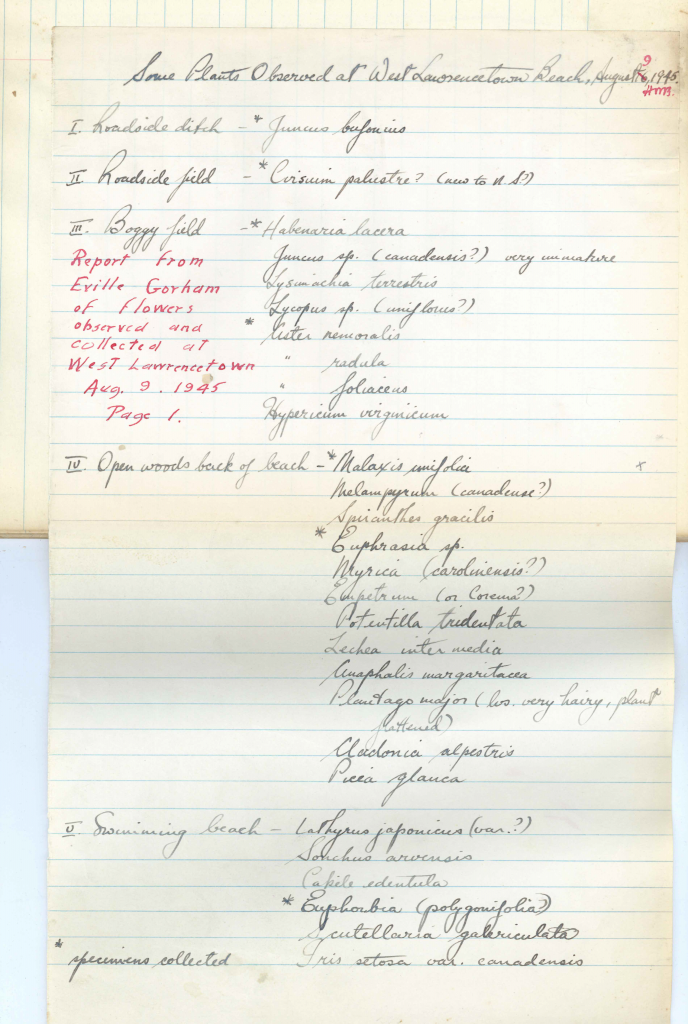 Some Plants Observed at West Lawrencetown Beach, August 9, 1945.
HMB.
I. Roadside ditch - * Juncus bufonius
II Roadside field - * Cirsium palustre? (new to N.S?)
III. Boggy field - * Habenaria lacera
Juncus sp. (canadensis?) very immature
Lysimachia terrestris
Lycopus sp. (uniflorus?)
* Aster nemoralis
" radula
" foliaceus
Hypericum virginicum
Report From
Eville Gorham
of Flowers
observed and
collected at
West Lawrencetown
Aug. 9. 1945
Page 1.
IV. Open woods back of beach - * Malaxis unifolia x
Melampyrum (canadense?)
Spiranthes gracilis
* Euphrasia sp.
Myrica (carolinensis?)
Empetrum (or Corema?)
Potentilla tridentata
Lechea intermedia
Anaphalis margaritacea
Plantago major (lvs. very hairy, plant
flattened)
Cladonia alpestris
Picea glauca
V. Swimming beach - Lathyrus japonicus (var.?)
Sonchus arvensis
Cakile edentula
* Euphorbia (polygonifolia?)
Scutellaria galericulata
Iris setosa var. canadensis
* specimens collected